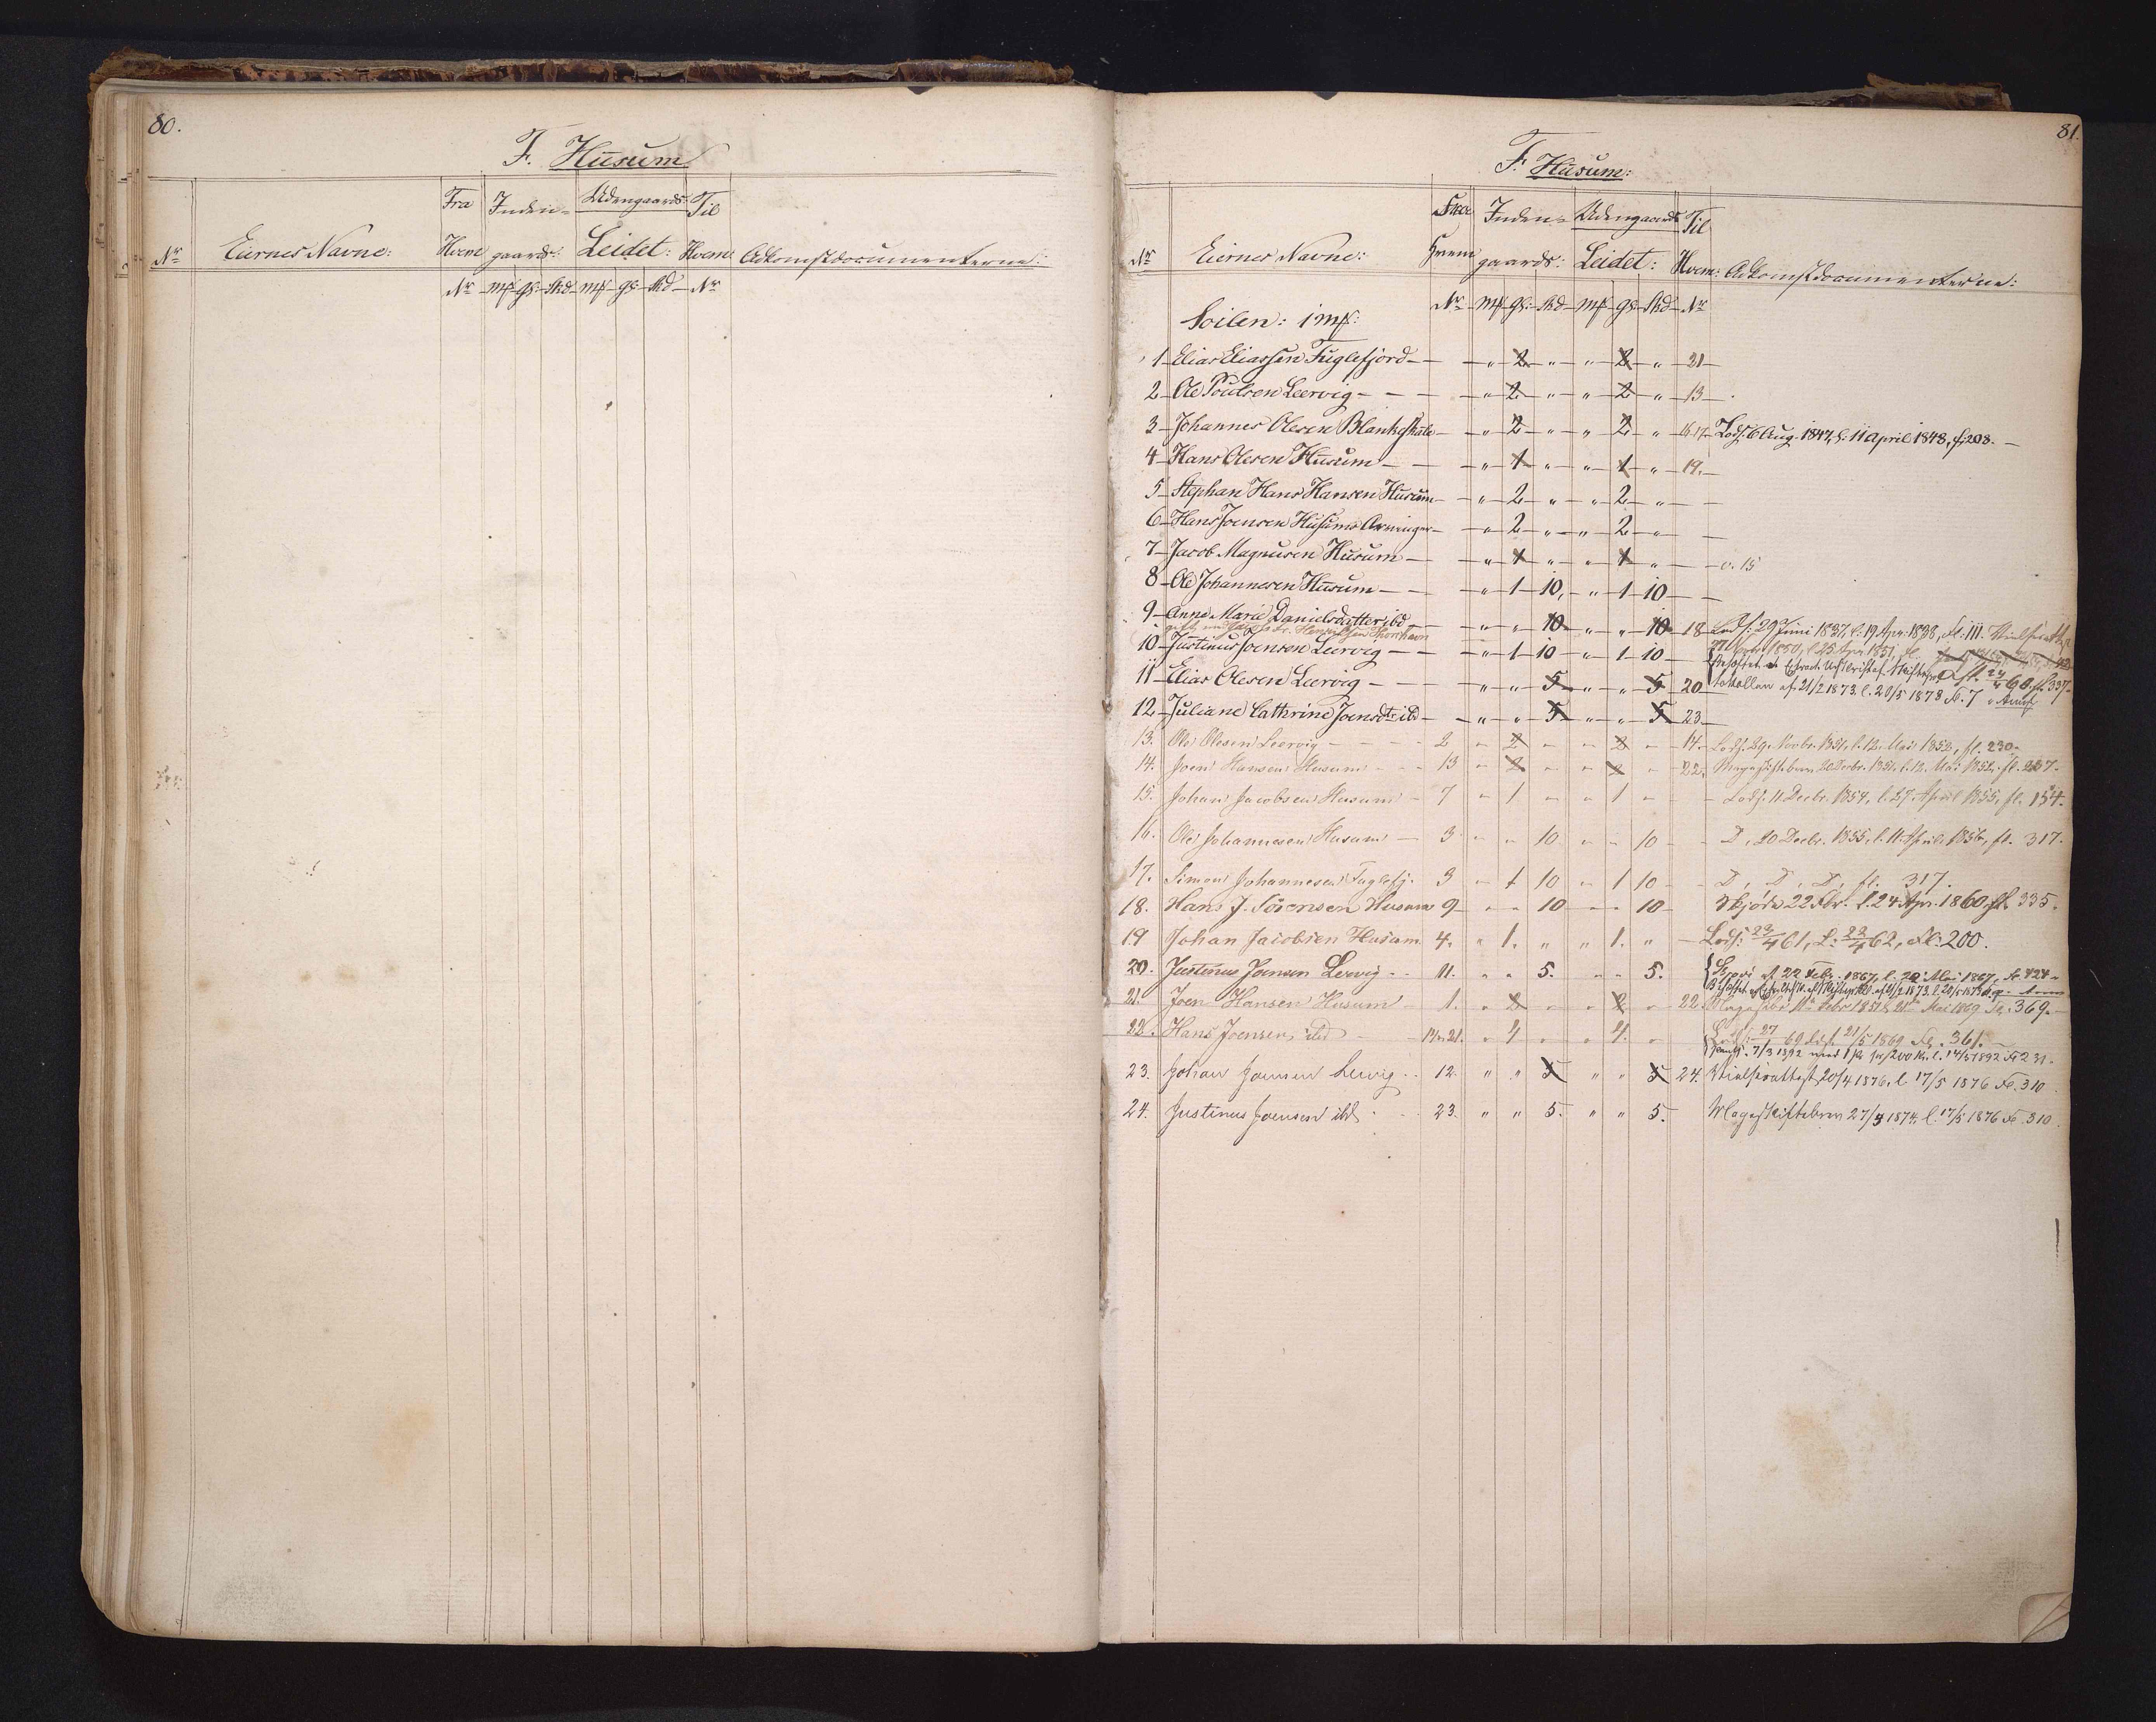 80.
F. Husum
Nr Eiernes Navne: Fra Hvem Inden= gaards: Udengaards: Leidet: Til Hvem Adkomstdocumenterne:
Nr mk gs: skd mk gs skd Nr
81.
F. Husum:
Nr Eiernes Navne: Fra Hvem Inden= gaards: Udengaards Leidet: Til Hvem: Adkomstdocumenterne:
Nr mk gs: skd mk gs skd Nr
Soilen: 1 mk:
1 Elias Eliassen Fuglefjord — " 2 " " 2 " 21
2 Ole Poulsen Leervig — " 2 " " 2 " 13
3 Johannes Olesen Blankskale — " 2 " " 2 " 16.17 Lods. 6 Aug. 1847, l: 11 April 1848, f: 208.
4 Hans Olesen Husum — " 1 " " 1 " 19.
5 Stephan Hans Hansen Husum — " 2 " " 2 "
6 Hans Joensen Husums Arvinger — " 2 " " 2 "
7 Jacob Magnusen Husum — " 1 " " 1 " 15
8 Ole Johannesen Husum — " 1 10 " 1 10
9 Anne Marie Danielsdatter ibd — " " 10 " " 10 18 Lods: 29 Juni 1837, l: 19 Apr: 1838, fl: 111.
10 Justinus Joensen Leervig — " 1 10 " 1 10
11 Elias Olesen Leervig — " " 5 " " 5 20 21/2 1873. l. 20/5 1878 fl. 7
12 Juliane Cathrine Joensdtr ibd — " " 5 " " 5 23
13. Ole Olesen Leervig — 2 " 2 " " 2 " 14. Lods. 29. Novbr. 1851, l. 12. Mai 1852, fl. 230.
14. Joen Hansen Husum — 13 " 2 " " 2 " 22. Mageskiftebrev 20 Decbr. 1851, l. 12. Mai 1852, fl.
15. Johan Jacobsen Husum — 7 " 1 " " 1 " Lods. 11 Decbr. 1854, l. 27. April 1855, fl. 154.
16. Ole Johannesen Husum — 3 " " 10 " " 10 D, 20 Decbr. 1855, l. 11. April 1856, fl. 317.
17. Simon Johannesen Fuglefj. 3 " 1 10 " 1 10 D, D, D, fl. 317.
18. Hans J. Sörensen Husum 9 " " 10 " " 10 Skjöde 22 Fbr. l. 24 Apr. 1860, fl. 335.
19 Johan Jacobsen Husum. 4. " 1. " " 1. " Lods: 23/4 61, L: 23/4 62, Fl: 200.
20. Justinus Joensen Leervig 11. " " 5. " " 5. 22 Febr. 1867, l. 22 Mai 1867, fl. 424
21. Joen Hansen Husum 1. " 2 " " 2 " 22. Mai 1869 Fl. 369.
22. Hans Joensen, ibd 14 21. " 4 " " 4. " 21/5 1869 Fl. 361.
7/3 1892 med 1 Pr for 200 Kr. l. 14/5 1892 Fl 231.
23. Johan Joensen Lervig 12. " " 5 " " 5 24. Vielsesattest 20/4 1876, l. 17/5 1876 Fl. 310
24. Justinus Joensen ibd 23. " " 5. " " 5. Mageskiftebrev 27/3 1874, l. 17/5 1876 Fl. 310.